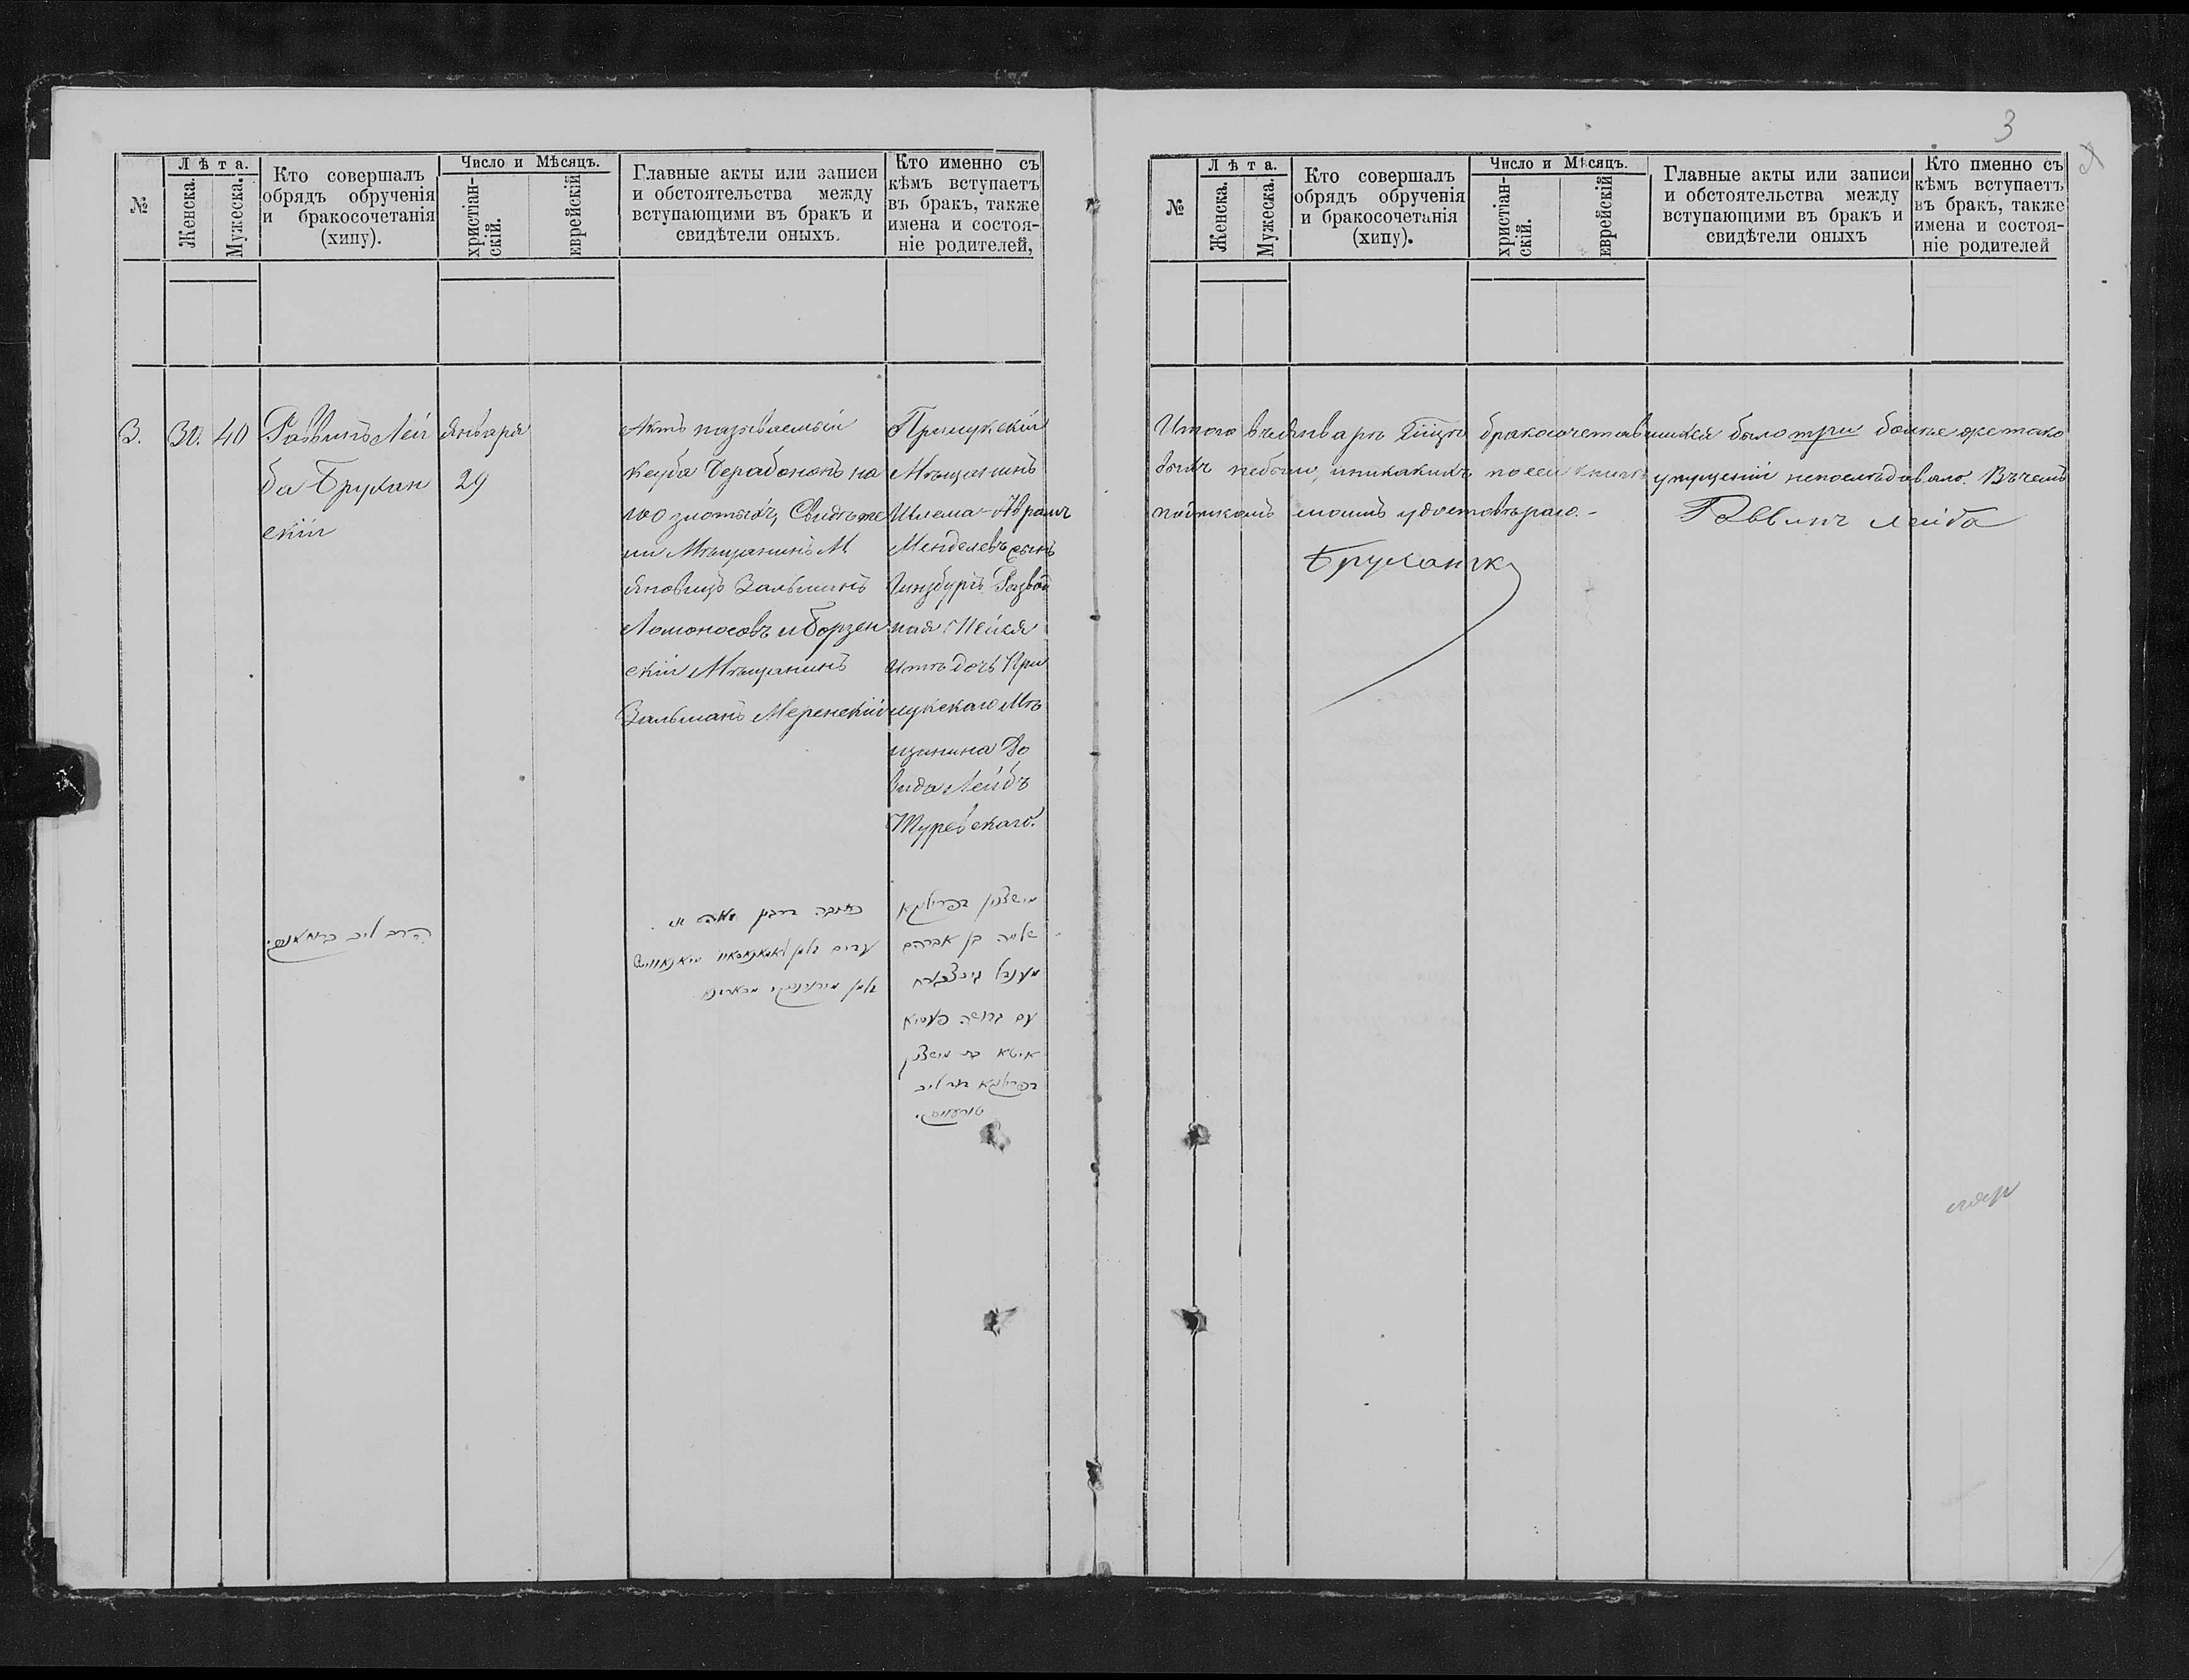 3
№
Лѣта.
Женска.
Мужеска.
Кто совершалъ
обрядъ обрученія
и бракосочетанія
(хупу).
Число и Мѣсяцъ.
христіан-
скій.
еврейскій
Главные акты или записи
и обстоятельства между
вступающими въ бракъ и
свидѣтели оныхъ.
Кто именно съ
кѣмъ вступаетъ
въ бракъ, также
имена и состоя-
ніе родителей,
3.
30.
40
Раввинъ Лей
ба Брухан
скій
Января
29
Актъ називаемый
Кесуба Дерабонанъ на
100 злотыхъ, Свидѣте
ли Мѣщанинъ М
Яновицъ Зальманъ
Ломоносовъ и Борзен
скій Мѣщанинъ
Зальманъ Меренскій
Прилукскій
Мѣщанинъ
Шлема-Абрамъ
Менделевъ сынъ
Гинзбургъ Развод
ная Пейся
Итта дочь При
лукскаго Мѣ
щанина До
вида Лейбъ
Туревскаго.
הרב ליב
עדים זלמן
זלמן
שלמה בן אברהם
מענדל
עם גרושה פעסיא
איטא בת
№
Лѣта.
Женска.
Мужеска.
Кто совершалъ
обрядъ обрученія
и бракосочетанія
(хипу).
Число и Мѣсяцъ.
христіан-
скій.
еврейскій
Главные акты или записи
и обстоятельства между
вступающими въ бракъ и
свидѣтели оныхъ
Кто именно съ
кѣмъ вступаетъ
въ бракъ, также
имена и состоя-
ніе родителей
Итого въ Январѣ бракосочетавшихся было три болѣе же тако
выхъ небыло, иникакихъ по сей книгѣ упущеній непослѣдовало. Въ чемъ
подписомъ моимъ удостовѣряю.- Раввинъ Лейба
Бруханск